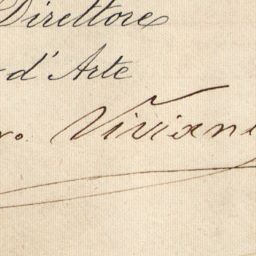 Direttore
d'Arte
vo. Vivian